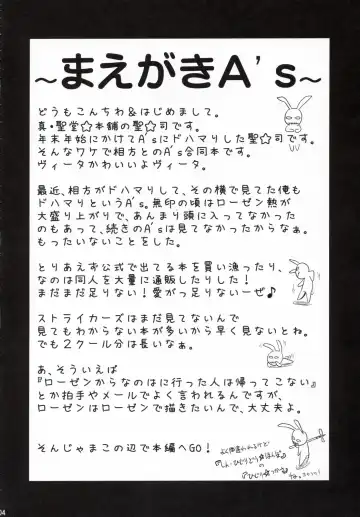 ～まえがきA's～
どうもこんちわ＆はじめまして。
真・聖堂☆本舗の聖☆司です。
年末年始にかけてA'sにドハマりした聖☆司です。
そんなワケで相方とのA's合同本です。
ヴィータかわいいよヴィータ。
最近、相方がドハマりして、その横で見てた俺も
ドハマりというA's。無印の頃はローゼン熱が
大盛り上がりで、あんまり頭に入ってなかった
のもあって、続きのA'sは見てなかったからなぁ。
もったいないことをした。
とりあえず公式で出てる本を買い漁ったり、
なのは同人を大量に通販したりした！
まだまだ足りない！愛がっ足りないーぜ♪
ストライカーズはまだ見てないんで
見てもわからない本が多いから早く見ないとね。
でも２クール分は長いなぁ。
あ、そういえば
『ローゼンからなのはに行った人は帰ってこない』
とか拍手やメールでよく言われるんですが、
ローゼンはローゼンで描きたいんで、大丈夫よ。
そんじゃまこの辺で本編へGO！
よく間違われるけど
04